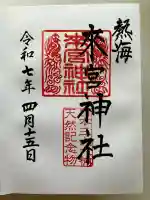 熱海
來宮神社
天然記念物
令和七年四月十五日